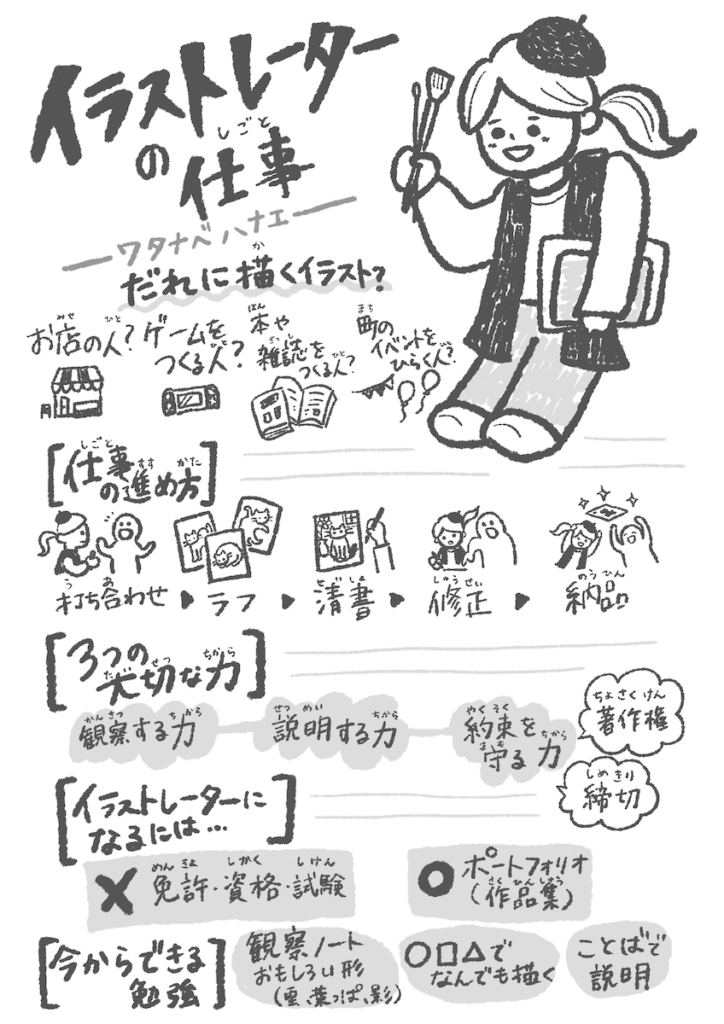 イラストレーター
の仕事
しごと
ワタナベハナエ
だれに描くイラスト?
か
お店の人?
みせ ひと
ゲームを
つくる人?
ひと
本や
ほん
雑誌を
ざっし
つくる人?
ひと
町の
まち
イベントを
ひらく人?
ひと
[仕事
しごと
の進め方]
すす かた
打ち合わせ▶ラフ▶清書▶修正▶納品
う あ せいしょ しゅうせい のうひん
[3つの
大切な力]
たいせつ ちから
観察する力
かんさつ ちから
説明する力
せつめい ちから
約束を
やくそく
守る力
まも ちから
著作権
ちょさくけん
締切
しめきり
[イラストレーターに
なるには…]
✕ 免許・資格・試験
めんきょ しかく しけん
○ ポートフォリオ
(作品集)
さくひんしゅう
[今からできる
勉強]
観察ノート
おもしろい形
(雲、葉っぱ、影)
○□△で
なんでも描く
ことばで
説明